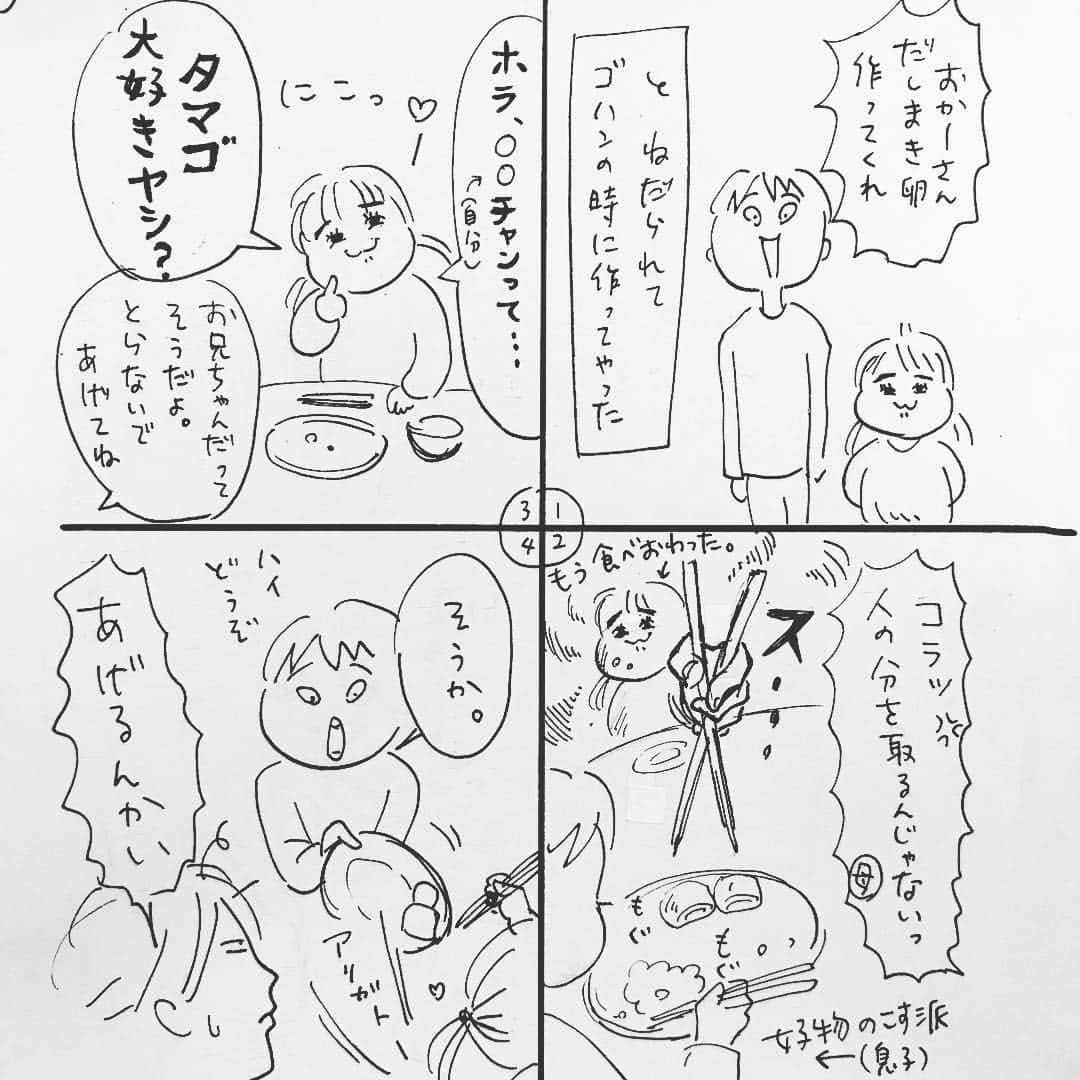 おかーさん
だしまき卵
作ってくれ
と ねだられて
ゴハンの時に作ってやった
1
2
コラッ
人の分を取るんじゃないっ
母
もう食べおわった。
ス
もぐ
もぐ
好物のこす派
(息子)
3
ホラ、〇〇チャンって…
(自分)
にこっ
タマゴ
大好きヤン?
お兄ちゃんだって
そうだよ。
とらないで
あげてね
4
そうか。
ハイ
どうぞ
アリガト
あげるんかい